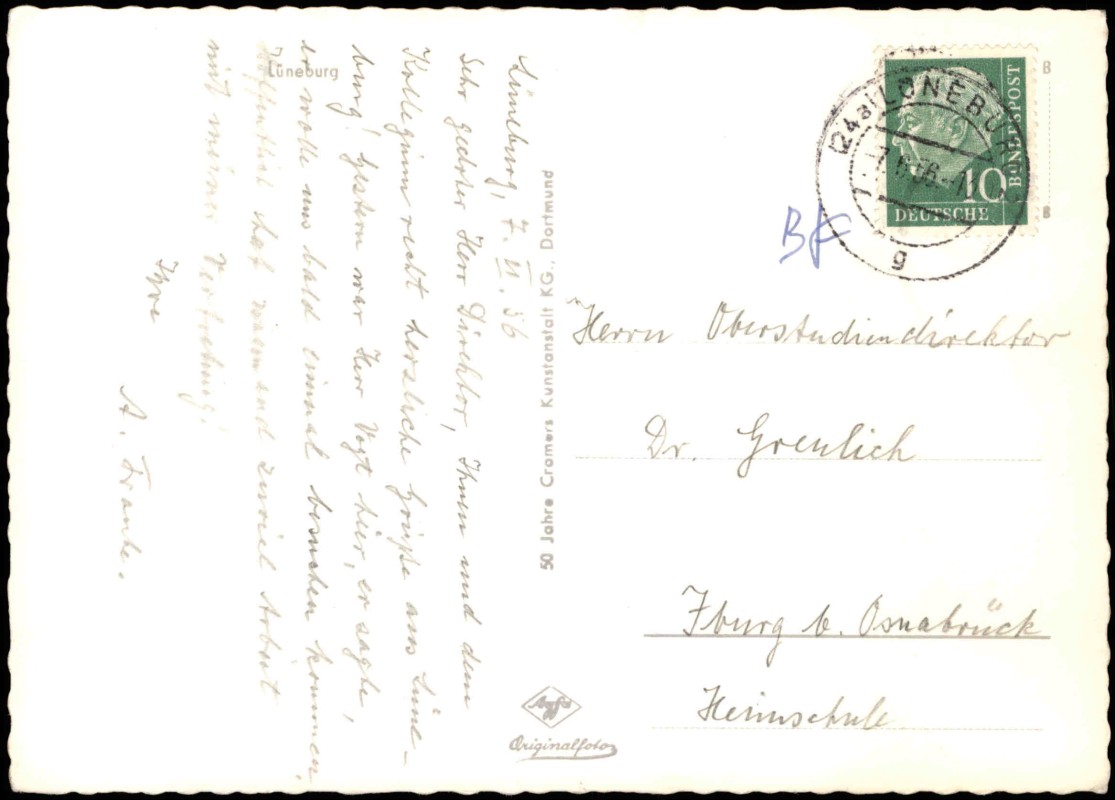 Lüneburg
Lüneburg, 7. VI. 56
Sehr geehrter Herr Direktor, Ihnen und dem
Kollegium recht herzliche Grüße aus Lüne-
burg! Gestern war Herr Vogt hier, er sagte,
er wolle uns bald einmal besuchen kommen.
Hoffentlich hat niemand zuviel Arbeit
mit meiner Vertretung!
Ihre
A. Franke.
50 Jahre Cramers Kunstanstalt KG., Dortmund
Agfa
Originalfoto
(24a) LÜNEBURG
g
10
DEUTSCHE
BUNDESPOST
B
B
Herrn Oberstudiendirektor
Dr. Greulich
Iburg b. Osnabrück
Heimschule